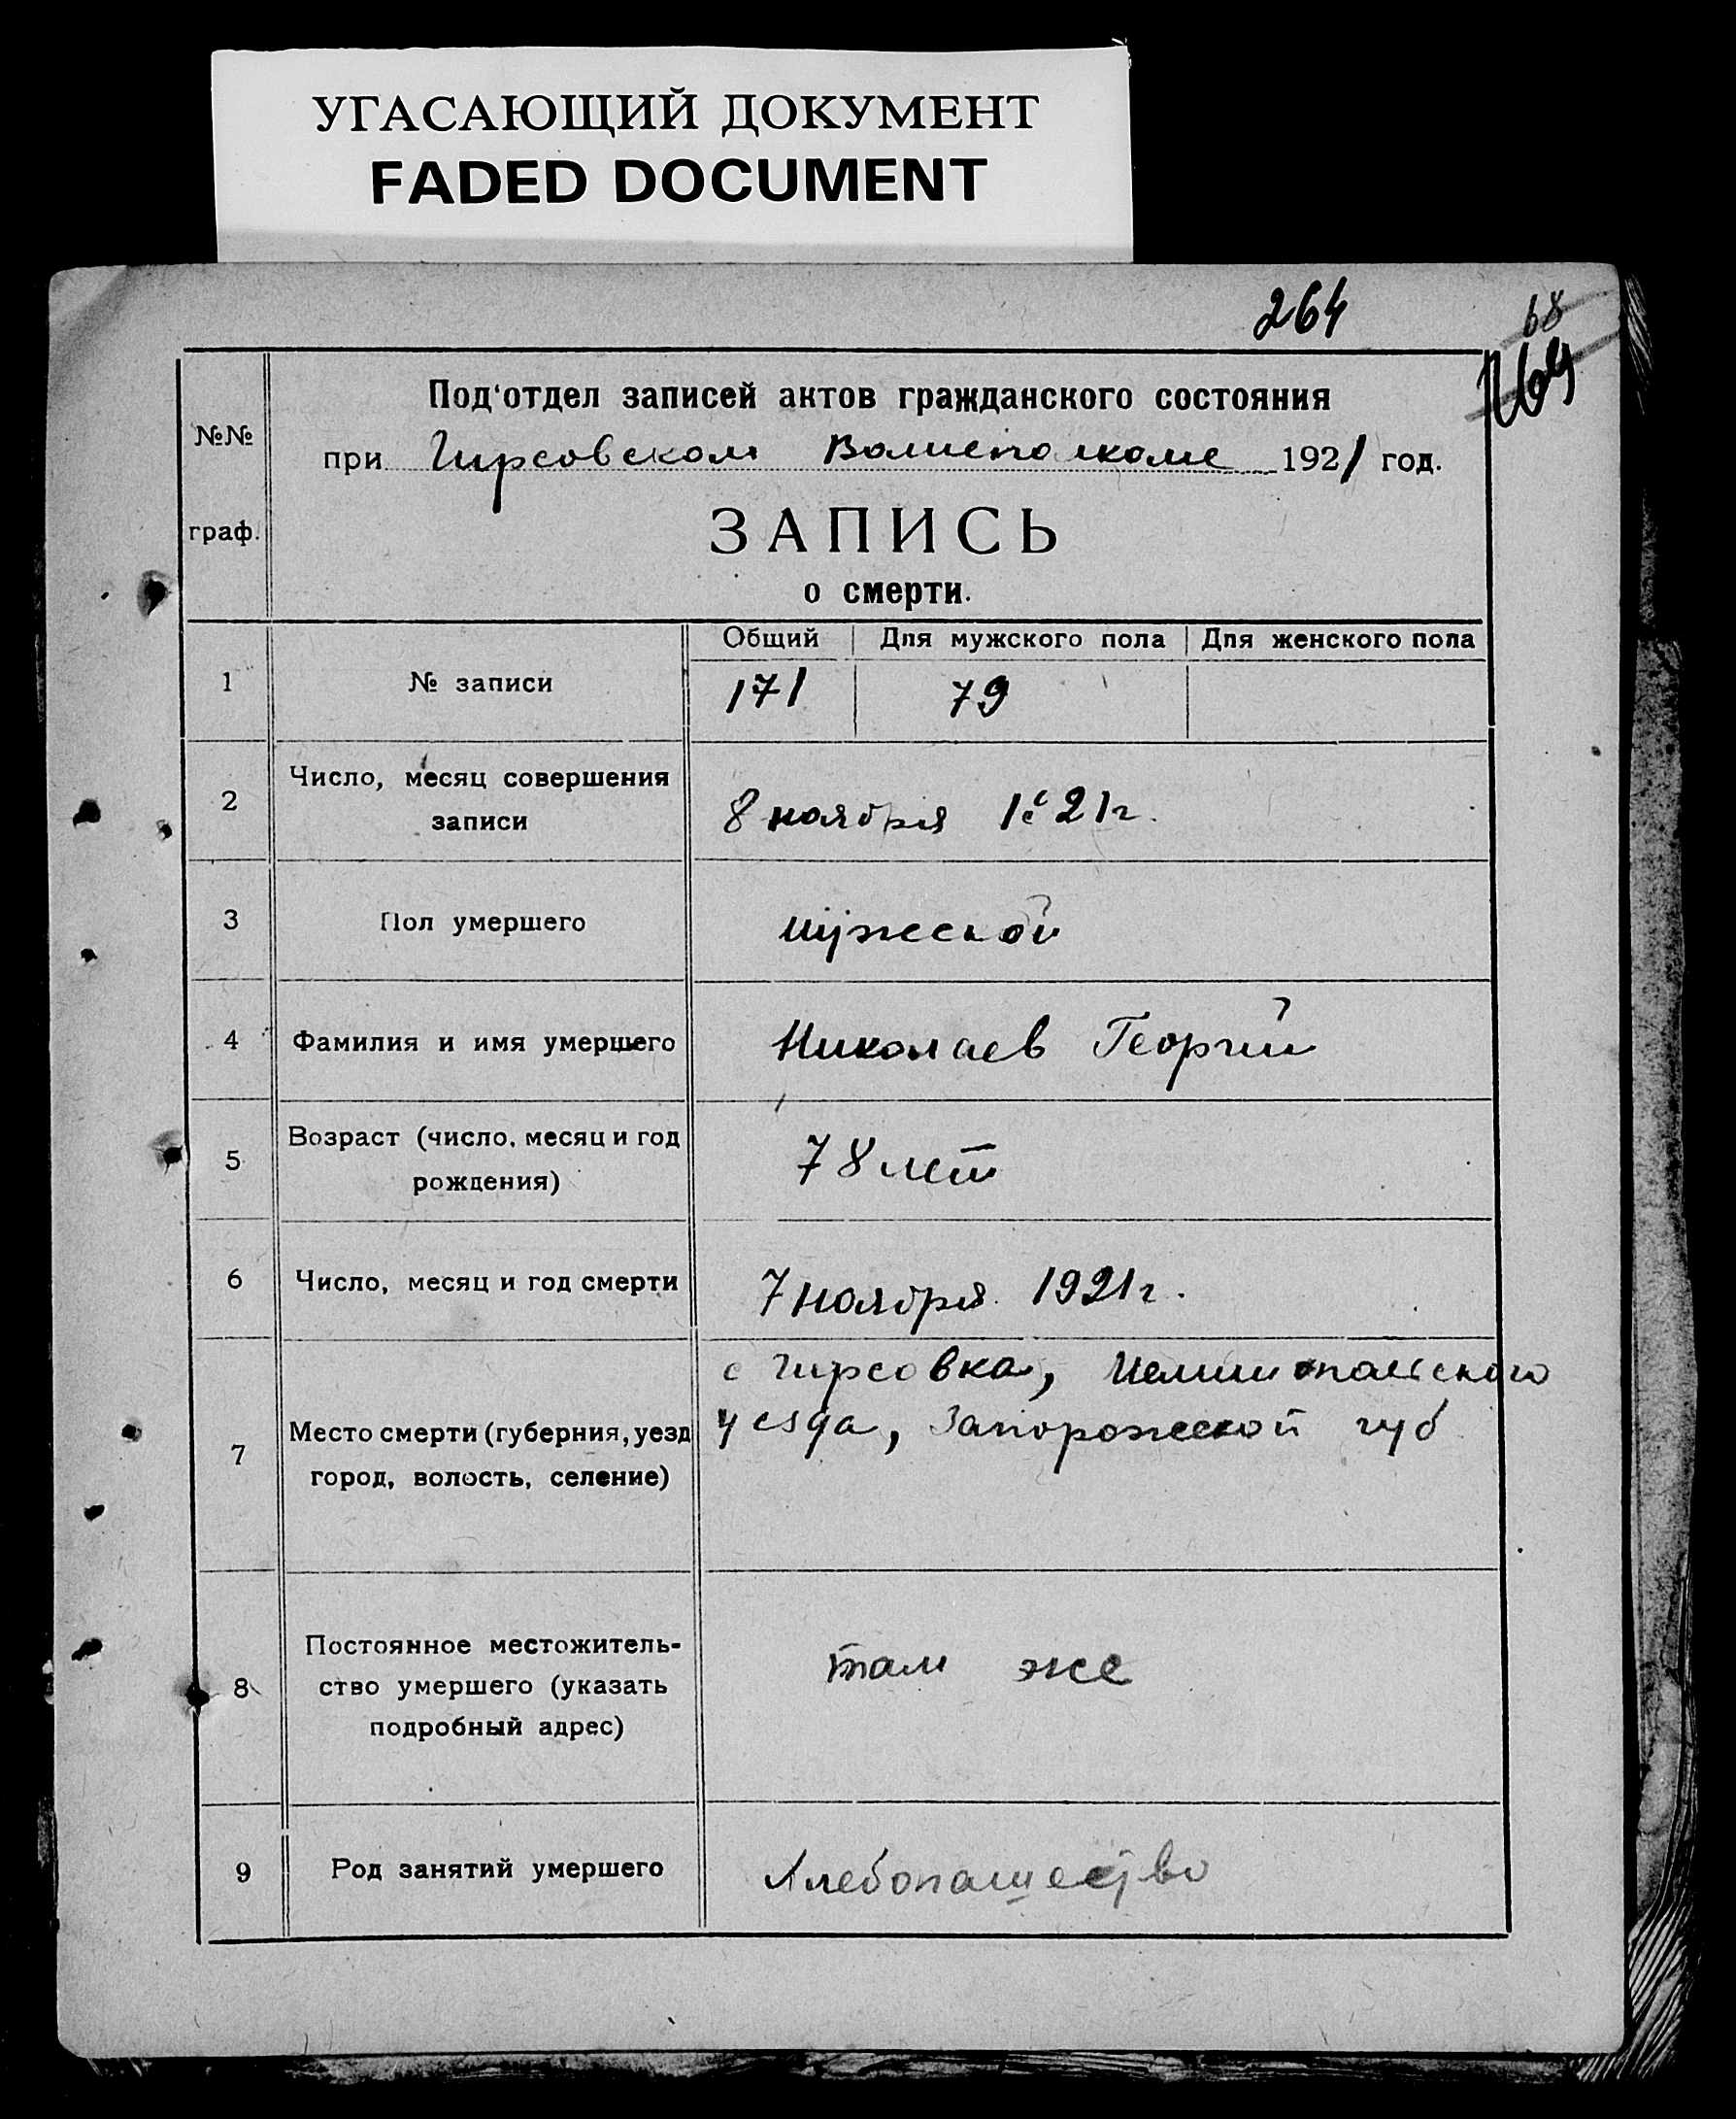 УГАСАЮЩИЙ ДОКУМЕНТ
FADED DOCUMENT
264
68
Под'отдел записей актов гражданского состояния
№№
при Гирсовском Волисполкоме 1921 год.
граф.
ЗАПИСЬ
о смерти.
Общий Для мужского пола Для женского пола
1 № записи 171 79
2 Число, месяц совершения
записи
8 ноября 1921г.
3 Пол умершего мужской
4 Фамилия и имя умершего Николаев Георгий
5 Возраст (число, месяц и год
рождения)
78 лет
6 Число, месяц и год смерти 7 ноября 1921г.
7 Место смерти (губерния, уезд
город, волость, селение)
с Гирсовка, Мелитопольского
уезда, Запорожской губ
8 Постоянное местожитель-
ство умершего (указать
подробный адрес)
там же
9 Род занятий умершего Хлебопашество